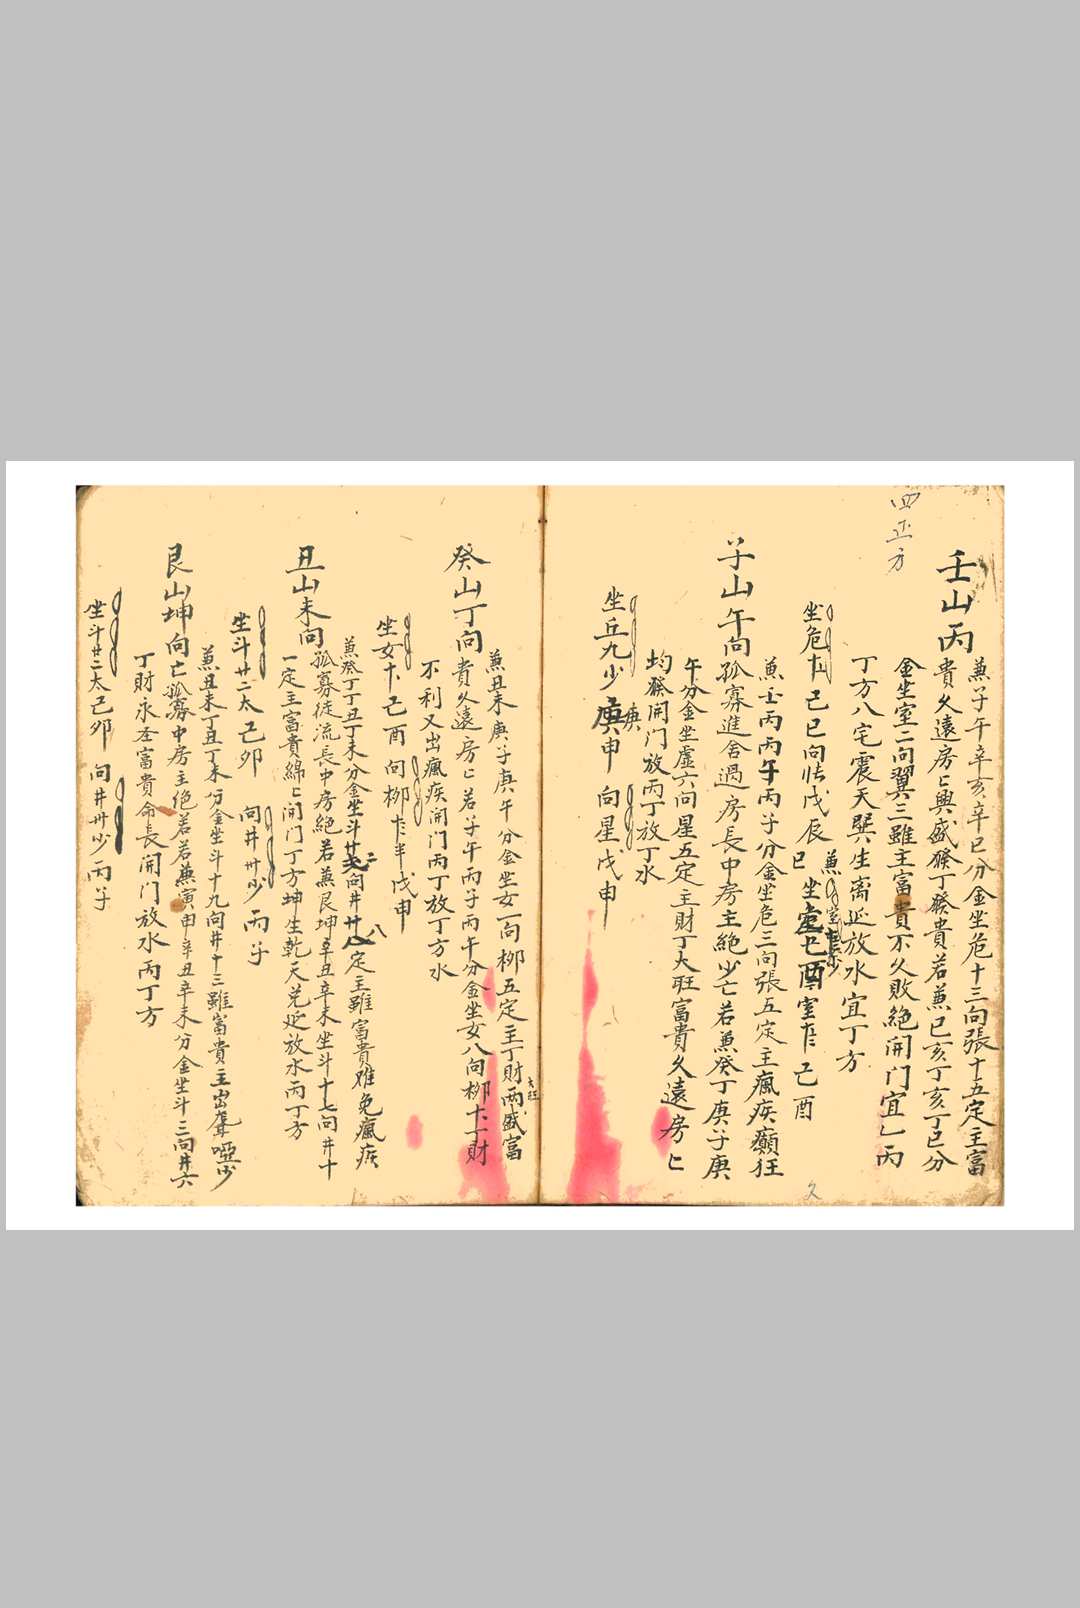 四正方
壬山丙
兼子午辛亥辛巳分金坐危十三向張十五定主富
貴久遠房匕興盛發丁發貴若兼巳亥丁亥丁巳分
金坐室二向翼三雖主富貴不久敗絕開門宜乙丙
丁方八宅震天巽生离延放水宜丁方
坐危 己巳向张戊辰
兼壬丙丙午丙子分金坐危三向張五定主瘋疾癲狂
子山午向孤寡進舍過房長中房主絕少亡若兼癸丁庚子庚
午分金坐虛六向星五定主財丁大旺富貴久遠房匕
均發開门放丙丁放丁水
坐丘九少庚申 向星戊申
兼丑未庚子庚午分金坐女一向柳五定主丁財兩盛富
大旺
癸山丁向貴久遠房匕若子午丙子丙午分金坐女八向柳十丁財
不利又出瘋疾開門丙丁放丁方水
坐女 己酉 向柳 半戊申
兼癸丁丁丑丁未分金坐斗廿 向井廿八定主雖富貴难免瘋疾
丑山未向孤寡徒流長中房絕若兼艮坤辛丑辛未坐斗十七向井十
一定主富貴綿匕開门丁方坤生乾天兑延放水丙丁方
坐斗廿二太己夘 向井卅少丙子
兼丑未丁丑丁未分金坐斗十九向井十三雖富貴主出聾啞少
艮山坤向亡孤寡中房主絕若若兼寅申辛丑辛未分金坐斗三向井六
丁財永在富貴命長開门放水丙丁方
坐斗廿二太己夘 向井卅少丙子